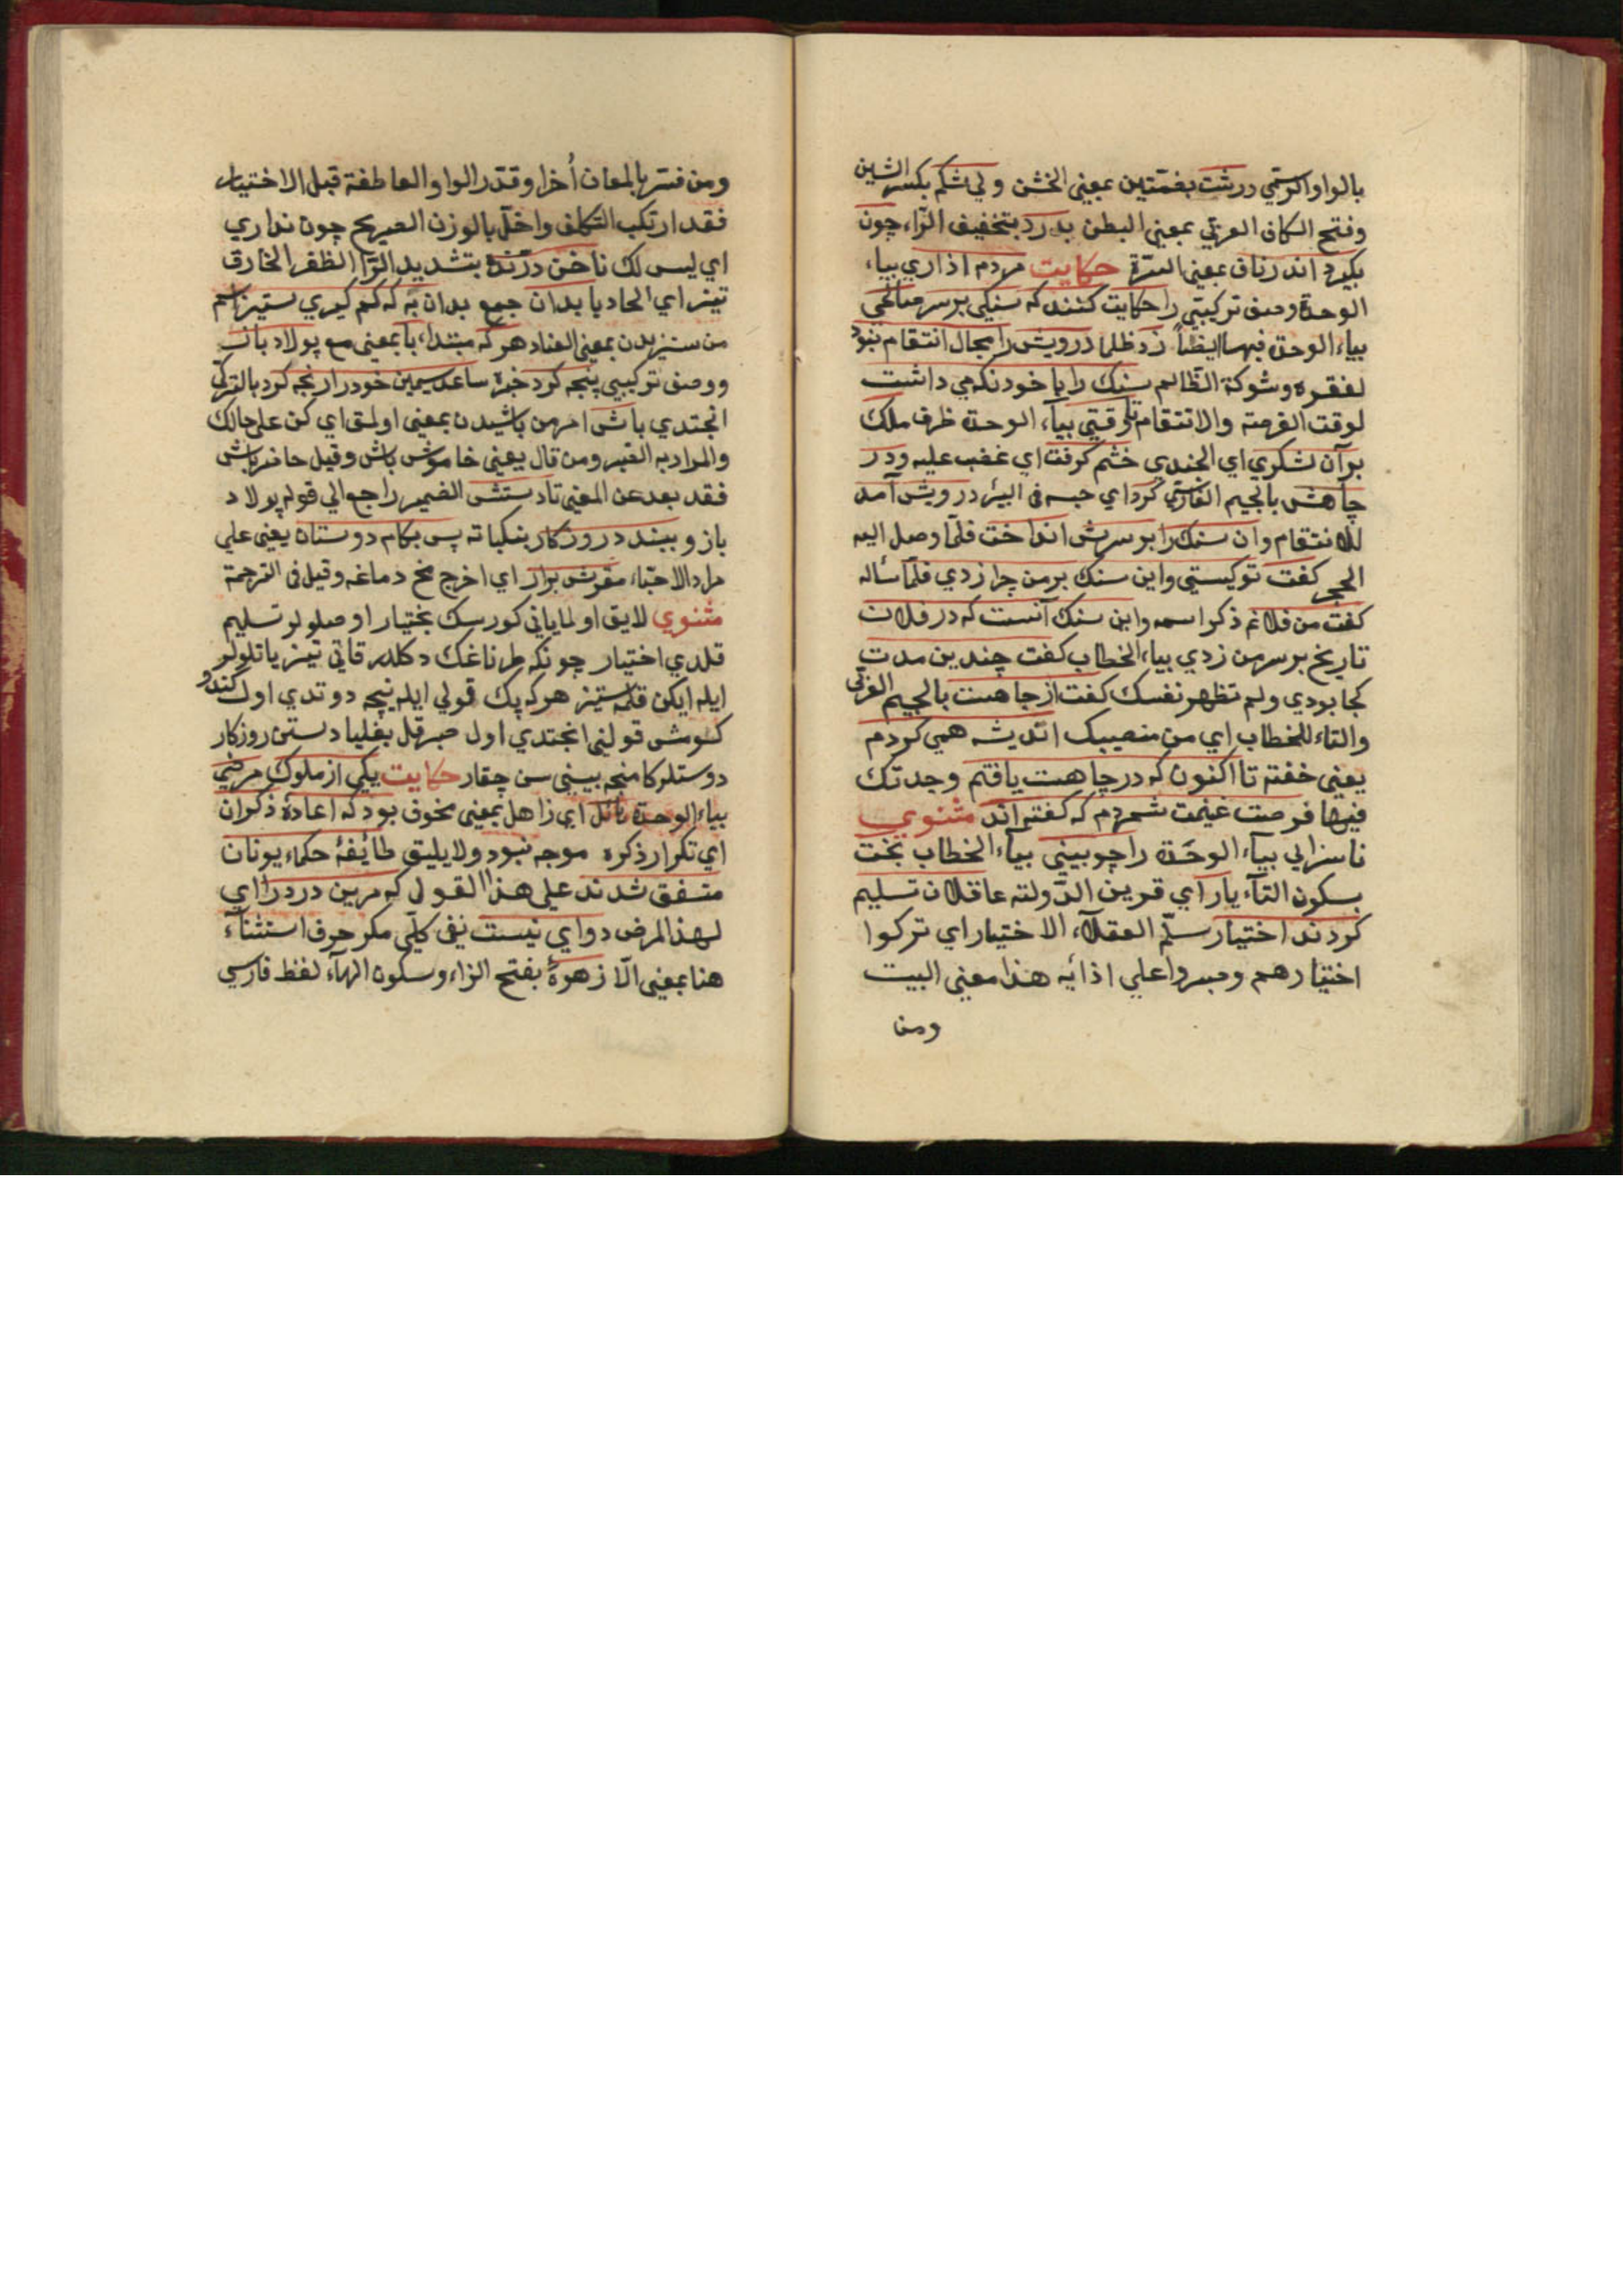 بالواو الرسمي درشت بضمتين بمعنى الخشن ولي شكم بكسر الشين
وفتح الكاف العربي بمعنى البطن بدرد بتخفيف الراء چون
بكيرد اندر ناف بمعنى السرة حكايت مردم ازاري بياء
الوحدة وصف تركيبي را حكايت كنند كه سنكي بر سر صالحي
بياء الوحدة فيهما ايضاً زد ظلما درويش را مجال انتقام نبود
لفقره وشوكة الظالم سنك را با خود نكه مي داشت
لوقت الفرصة والانتقام تا وقتي بياء الوحدة ظرف ملك
بر آن لشكري اي الجندي خشم كرفت اي غضب عليه ودر
چاهش بالجيم الفارسي كرد اي حبسه في البئر درويش آمد
للانتقام وان سنك را بر سرش انداخت فلما وصل اليه
الحجر كفت تو كيستي واين سنك بر من چرا زدي فلما سأله
كفت من فلانم ذكر اسمه واين سنك آنست كه در فلان
تاريخ بر سر من زدي بياء الخطاب كفت چندين مدت
كجا بودي ولم تظهر نفسك كفت از جاهت بالجيم العربي
والتاء للخطاب اي من منصبك انديشه همي كردم
يعني خفته تا اكنون كه در چاهت يافتم وجدتك
فيها فرصت غنيمت شمردم كه كفته اند مثنوي
ناسزايي بياء الوحدة را چو بيني بياء الخطاب بخت
بسكون التاء يار اي قرين الدولته عاقلان تسليم
كردند اختيار سلم العقلاء الاختيار اي تركوا
اختيارهم وصبروا على اذائه هذا معنى البيت
ومن
ومن فسر بالمعان أخرا وقدر الواو العاطفة قبل الاختيار
فقد ارتكب التكلف واخل بالوزن الصريح چون نداري
اي ليس لك ناخن درنده بتشديد الراء الظفر الخارق
تيز اي الحاد با بدان جمع بد ان به كه كم كيري ستيز اسم
من ستيزيدن بمعنى العناد هر كه مبتداء با بمعنى مع پولاد بازو
ووصف تركيبي پنجه كرد خبره ساعد سيمين خود را رنجه كرد بالتركي
انجتدي باش امر من باشيدن بمعنى اولمق اي كن على حالك
والمراد به الصبر ومن قال يعني خاموش باش وقيل حاضر باش
فقد بعد عن المعنى تا دستش الضمير راجع الي قوله پولاد
بازو ببندد روزكار بنكباته پس بكام دوستان يعني على
مراد الاحباء مغزش برار اي اخرج مخ دماغه وقيل في الترجمة
مثنوي لايق اولمايانى كورسك بختيار اوصلولر تسليم
قلدي اختيار چونكه طرناغك دكلدر قاتي تيز ياتلولر
ايله ايكن قلمه ستيز هر كه پك قولي ايله پنجه دوتدي اول كندو
كموش قولنى انجتدي اول صبر قل بغليا دستن روزكار
دوستلر كامنجه بيينى سن چقار حكايت يكي از ملوك مرضي
بياء الوحدة هائل اي زاهل بمعنى مخوف بود كه اعادهٔ ذكر ان
اي تكرار ذكره موجه نبود ولا يليق طائفهٔ حكماء يونان
متفق شدند على هذا القول كه مرين درد را اي
لهذا المرض دواي نيست نفي كلي مكر حرف استثناء
هنا بمعنى الا زهرهٔ بفتح الزاء وسكون الهاء لفظ فارسي